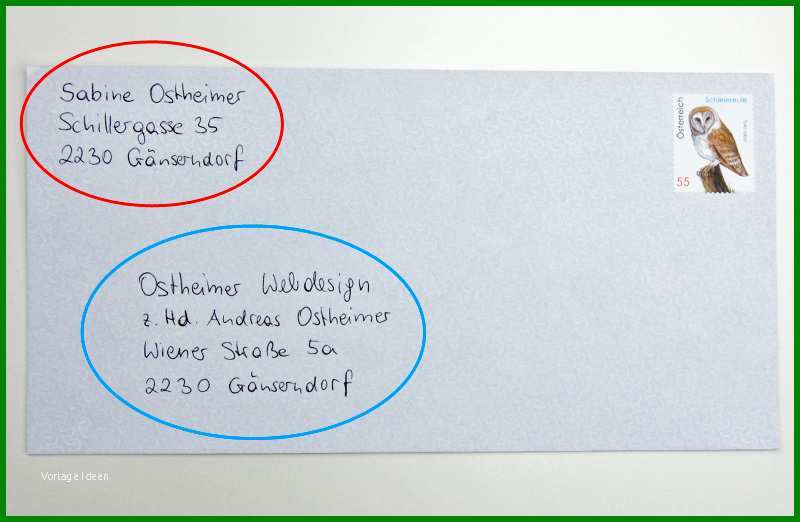 Sabine Ostheimer
Schillergasse 35
2230 Gänserndorf
Österreich
Schleiereule
55
Ostheimer Webdesign
z. Hd. Andreas Ostheimer
Wiener Straße 5a
2230 Gänserndorf
VorlageIdeen